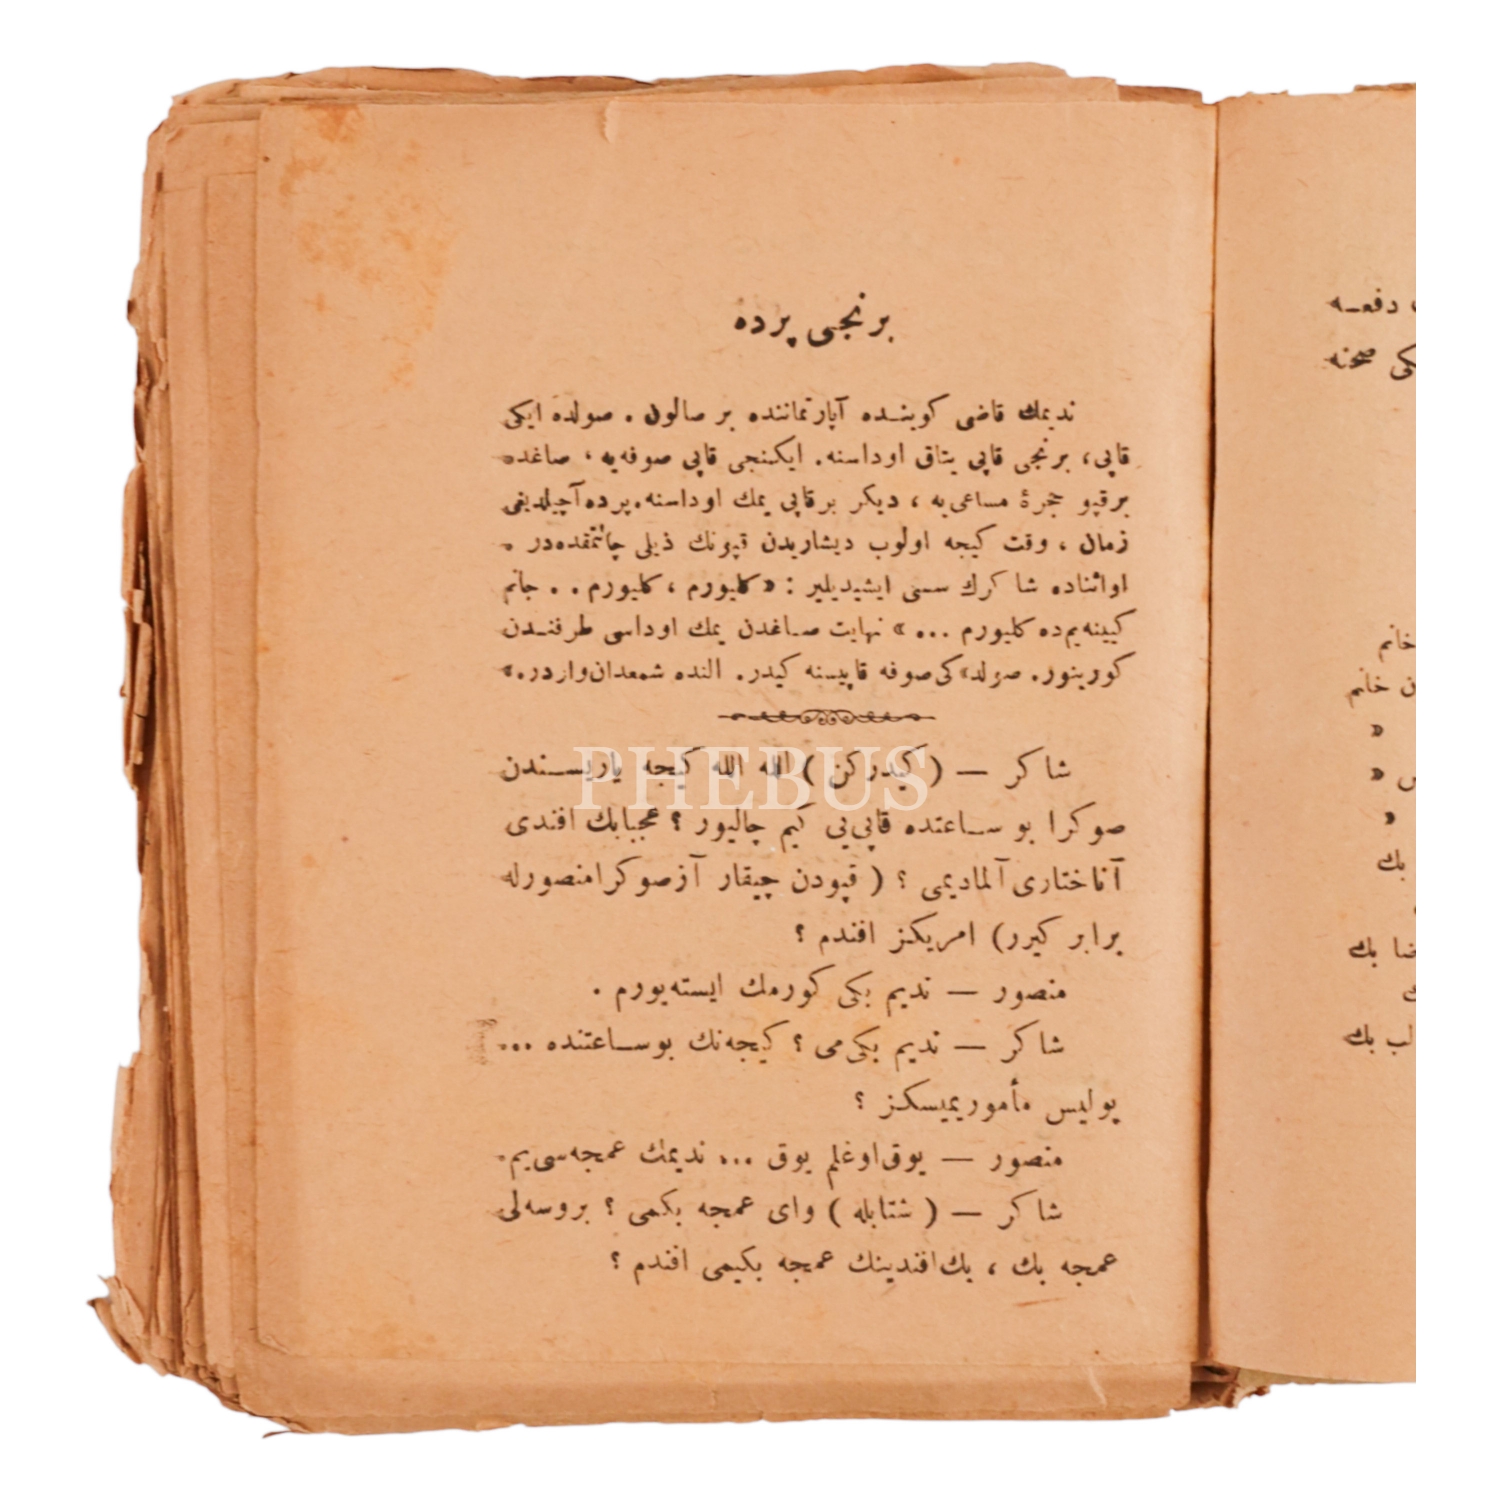 برنجی پرده
ندیمك قاضی كوینده آپارتماننده بر صالون . صولده ایكی
قاپی، برنجی قاپی یتاق اوداسنه. ایكنجی قاپی صوفه‌یه ، صاغده
برقپو حجرۀ مساعی‌یه ، دیكر برقاپی یمك اوداسنه. پرده آچیلدیغی
زمان ، وقت كیجه اولوب دیشاریدن قپونك ذیلی چالنمقده‌در .
اواثناده شاكرك سسی ایشیدیلیر : « كلیورم ، كلیورم . . جانم
كیینه‌یم‌ده كلیورم ... » نهایت صاغدن یمك اوداسی طرفندن
كورینور. صولده‌كی صوفه قاپیسنه كیدر. النده شمعدان واردر.»
شاكر — ( كیدركن ) الله الله كیجه یاریسندن
صوكرا بو ساعتده قاپی‌یی كیم چالیور ؟ عجبا بك افندی
آناختاری آلمادیمی ؟ ( قپودن چیقار آز صوكرا منصورله
برابر كیرر) امریكز افندم ؟
منصور — ندیم بكی كورمك ایسته‌یورم .
شاكر — ندیم بكی‌می ؟ كیجه‌نك بو ساعتنده ...
پولیس مأموریمیسكز ؟
منصور — یوق اوغلم یوق ... ندیمك عمجه‌سی‌یم.
شاكر — ( شتابله ) وای عمجه بكمی ؟ بروسه‌لی
عمجه بك ، بك‌افندینك عمجه بكیمی افندم ؟
دفعه
كی صحنه
خانم
ن خانم
»
س »
»
بك
ضا بك
ك
لب بك
PHEBUS